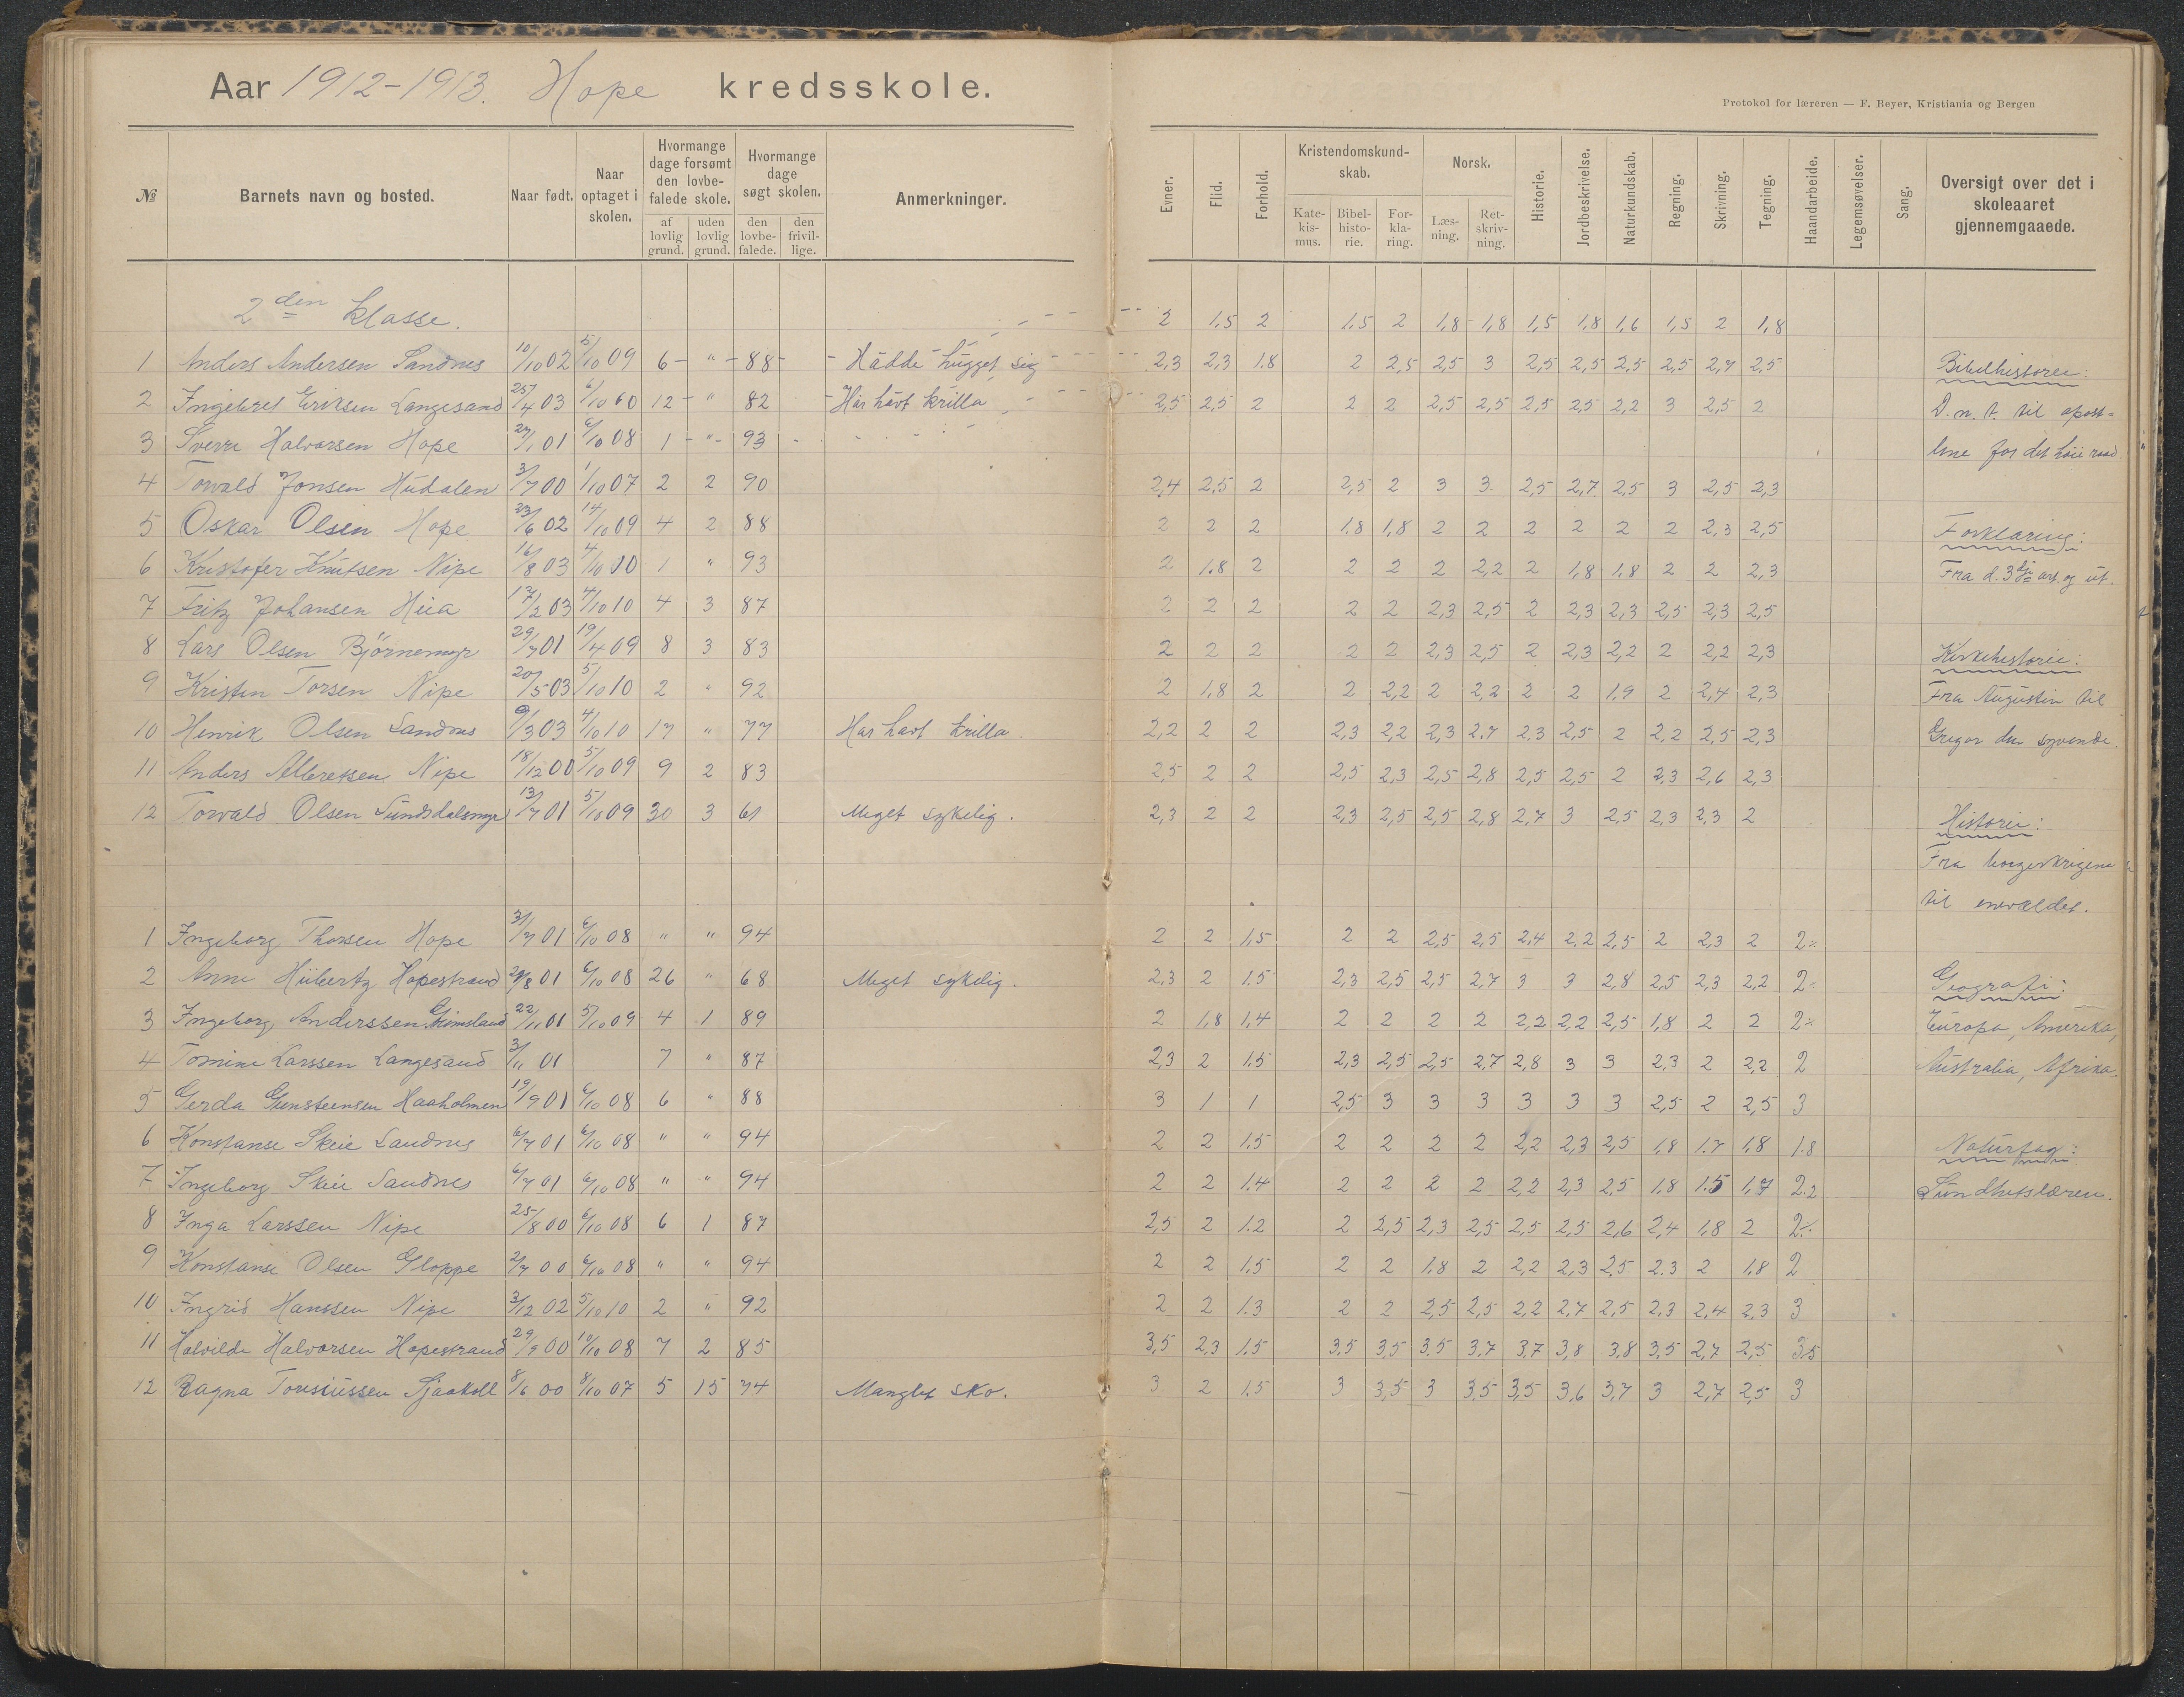 Aar 1912-1913. Hope kredsskole.
Protokol for læreren — F. Beyer, Kristiania og Bergen
№ Barnets navn og bosted. Naar født. Naar optaget i skolen. Hvormange dage forsømt den lovbefalede skole. af lovlig grund. uden lovlig grund. Hvormange dage søgt skolen. den lovbefalede. den frivillige. Anmerkninger. Evner. Flid. Forhold. Kristendomskundskab. Katekismus. Bibelhistorie. Forklaring. Norsk. Læsning. Retskrivning. Historie. Jordbeskrivelse. Naturkundskab. Regning. Skrivning. Tegning. Haandarbeide. Legemsøvelser. Sang. Oversigt over det i skoleaaret gjennemgaaede.
2den klasse. 2 1,5 2 1,5 2 1,8 1,8 1,5 1,8 1,6 1,5 2 1,8
1 Anders Andersen Sandnes 10/10 02 5/10 09 6 " 88 Hadde hugget sig 2,3 2,3 1.8 2 2,5 2,5 3 2,5 2,5 2,5 2,5 2,7 2,5 Bibelhistorie:
2 Ingebret Eriksen Langesand 25/4 03 6/10 60 12 " 82 Har havt krilla 2,5 2,5 2 2 2 2,5 2,5 2,5 2,5 2,2 3 2,5 2 D. n. t. til apost-
3 Sverre Halvorsen Hope 27/1 01 6/10 08 1 " 93 lene for det høie raad.
4 Torvald Jonsen Hudalen 3/7 00 1/10 07 2 2 90 2,4 2,5 2 2,5 2 3 3 2,5 2,7 2,5 3 2,5 2,3
5 Oskar Olsen Hope 23/6 02 14/10 09 4 2 88 2 2 2 1.8 1,8 2 2 2 2 2 2 2,3 2,5 Forklaring:
6 Kristofer Knutsen Nipe 16/8 03 4/10 10 1 " 93 2 1.8 2 2 2 2 2,2 2 1,8 1,8 2 2 2,3 Fra d. 3dje art. og ut.
7 Fritz Johansen Hua 17/2 03 4/10 10 4 3 87 2 2 2 2 2 2,3 2,5 2 2,3 2,3 2,5 2,3 2,5
8 Lars Olsen Björnemyr 29/7 01 19/4 09 8 3 83 2 2 2 2 2 2,3 2,5 2 2,3 2,2 2 2,2 2,3 Kirkehistorie:
9 Kristen Torsen Nipe 20/5 03 5/10 10 2 " 92 2 1,8 2 2 2,2 2 2,2 2 2 1,9 2 2,4 2,3 Fra Augustin til
10 Henrik Olsen Sandnes 9/3 03 4/10 10 17 " 77 Har havt krilla. 2,2 2 2 2,3 2,2 2,3 2.7 2,3 2,5 2 2,2 2,5 2,3 Gregor den syvende.
11 Anders Albretsen Nipe 18/12 00 5/10 09 9 2 83 2,5 2 2 2,5 2,3 2,5 2,8 2,5 2,5 2 2,3 2,6 2,3
12 Torvald Olsen Sundsdalsmyr 13/7 01 5/10 09 30 3 61 Meget sykelig. 2,3 2 2 2,3 2,5 2,5 2,8 2,7 3 2,5 2,3 2,3 2 Historie:
Fra borgerkrigene
til enevældet.
1 Ingeborg Thorsen Hope 3/7 01 6/10 08 " " 94 2 2 1,5 2 2 2,5 2,5 2,4 2.2 2,5 2 2,3 2 2
2 Anne Hubertz Hopestrand 21/8 01 6/10 08 26 " 68 Meget sykelig. 2,3 2 1.5 2,3 2,5 2,5 2,7 3 3 2,8 2,5 2,3 2,2 2 Geografi:
3 Ingeborg Anderssen Grimsland 22/11 01 5/10 09 4 1 89 2 1,8 1,4 2 2 2 2 2,2 2,2 2,5 1,8 2 2 2 Europa, Amerika,
4 Tomine Larssen Langesand 3/11 01 7 " 87 2,3 2 1.5 2,3 2,5 2,5 2,7 2,8 3 3 2,3 2 2,2 2 Australia, Afrika.
5 Gerda Gunsteensen Haaholmen 19/9 01 6/10 08 6 " 88 3 1 1 2,5 3 3 3 3 3 3 2,5 2 2,5 3
6 Konstanse Skeie Sandnes 6/7 01 6/10 08 " " 94 2 2 1.5 2 2 2 2 2,2 2,3 2,5 1,8 1.7 1,8 1.8 Naturfag:
7 Ingeborg Skeie Sandnes 6/7 01 6/10 08 " " 94 2 2 1.4 2 2 2 2 2,2 2,3 2,5 1,8 1.5 1,7 2.2 Sundhetslæren.
8 Inga Larssen Nipe 25/8 00 6/10 08 6 1 87 2,5 2 1.2 2 2,5 2,3 2,5 2,5 2,5 2,6 2,4 1,8 2 2
9 Konstanse Olsen Gloppe 2/7 00 6/10 08 " " 94 2 2 1,5 2 2 1,8 2 2,2 2,3 2,5 2.3 2 1,8 2
10 Ingrid Hanssen Nipe 3/12 02 5/10 10 2 " 92 2 2 1.3 2 2 2,5 2,5 2,2 2,7 2,5 2,3 2,4 2,3 3
11 Halvilde Halvorsen Hopestrand 29/9 00 10/10 08 7 2 85 3,5 2,3 1.5 3,5 3,5 3,5 3,7 3,7 3,8 3,8 3,5 2,7 2,5 3,5
12 Ragna Torsiussen Sjaakoll 8/6 00 8/10 07 5 15 74 Manglet sko. 3 2 1.5 3 3,5 3 3,5 3,5 3,6 3,7 3 2,7 2,5 3